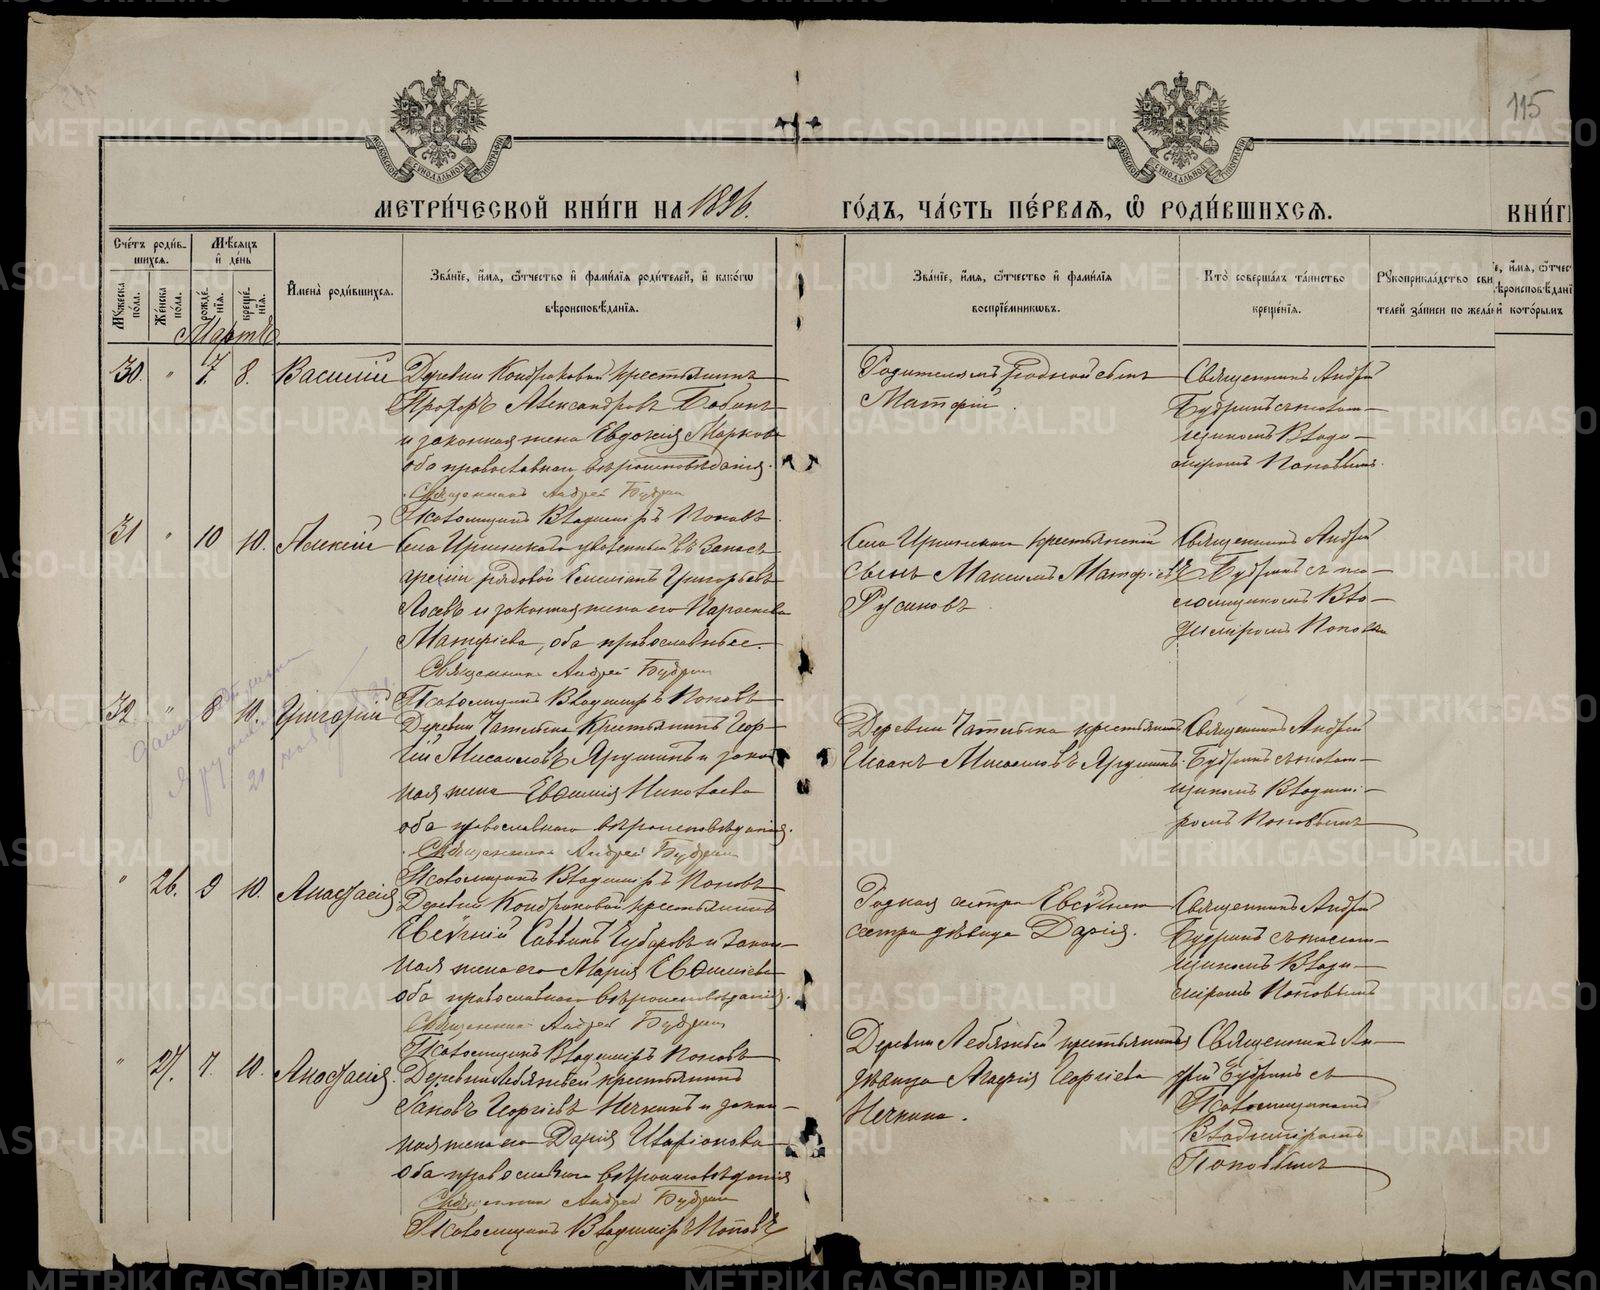 115
МЕТРИ́ЧЕСКОЙ КНИ́ГИ НА 1896.
ГО́ДЪ, ЧА́СТЬ ПЕ́РВАѦ, Ѿ РОДИ́ВШИХСѦ.
КНИ́ГИ
Сче́тъ роди́в-
шихсѧ.
Мѣ́сѧцъ
и҆ де́нь
Мꙋ́жеска
по́ла.
Же́нска
по́ла.
рожде́-
нїѧ.
креще́-
нїѧ.
И҆мена̀ роди́вшихсѧ.
Зва́нїе, и҆́мѧ, ѻ҆́тчество и҆ фами́лїѧ роди́телей, и҆ како́гѡ
вѣроисповѣ́данїѧ.
Зва́нїе, и҆́мѧ, ѻ҆́тчество и҆ фами́лїѧ
воспрїе́мникѡвъ.
Кто̀ соверша́лъ та́инство
креще́нїѧ.
Рꙋкоприкла́дство сви
телей за́писи по жела́н
Мартъ.
30. " 7. 8. Василій
Деревни Кондраковой крестьянинъ
Прохоръ Александровъ Бабинъ
и законная жена Евдокія Маркова
оба православнаго вѣроисповѣданія.
Священникъ Андрей Будрин
Псаломщикъ Владиміръ Поповъ
Родителямъ родной сынъ
Матфій.
Священникъ Андрей
Будринъ съ псалом-
щикомъ Влади-
міромъ Поповымъ.
31 " 10 10. Алексій
Села Иргинскаго уволенный въ запасъ
арміи рядовой Емеліанъ Григорьевъ
Лосевъ и законная жена его Параскева
Матфіева, оба православные.
Священникъ Андрей Будрин
Псаломщикъ Владиміръ Поповъ
Села Иргинскаго крестьянскій
сынъ Максимъ Матфіевъ
Русиновъ
Священникъ Андрей
Будринъ съ пса-
ломщикомъ Вла-
диміромъ Поповым
32 " 8 10. Григорій
Деревни Чатлыка крестьянинъ Геор-
гій Михаиловъ Ярушинъ и закон
ная жена Евѳимія Николаева
оба православнаго вѣроисповѣданія.
Священникъ Андрей Будрин
Псаломщикъ Владиміръ Поповъ
Деревни Чатлыка крестьянинъ
Іоаннъ Михаиловъ Ярушинъ.
Священникъ Андрей
Будринъ съ псалом-
щикомъ Владимі-
ромъ Поповымъ
" 26. 9 10. Анастасія
Деревни Кондраковой крестьянинъ
Евгеній Саввинъ Чубаровъ и закон-
ная жена его Марія Евѳиміева
оба православнаго вѣроисповѣданія.
Священникъ Андрей Будрин
Псаломщикъ Владиміръ Поповъ
Родная сестра Евгенія
сестра дѣвица Дарія.
Священникъ Андрей
Будринъ съ псалом-
щикомъ Влади-
міромъ Поповымъ
" 27. 7. 10. Анастасія.
Деревни Лебяжьей крестьянинъ
Іаковъ Георгіевъ Нечкинъ и закон-
ная жена его Дарія Иларіонова
оба православнаго вѣроисповѣданія
Священникъ Андрей Будрин
Псаломщикъ Владиміръ Поповъ
Деревни Лебяжьей крестьянинъ
дѣвица Агафія Георгіева
Нечкина.
Священникъ Ан-
дрей Будринъ съ
Псаломщикомъ
Владиміромъ
Поповымъ
METRIKI.GASO-URAL.RU